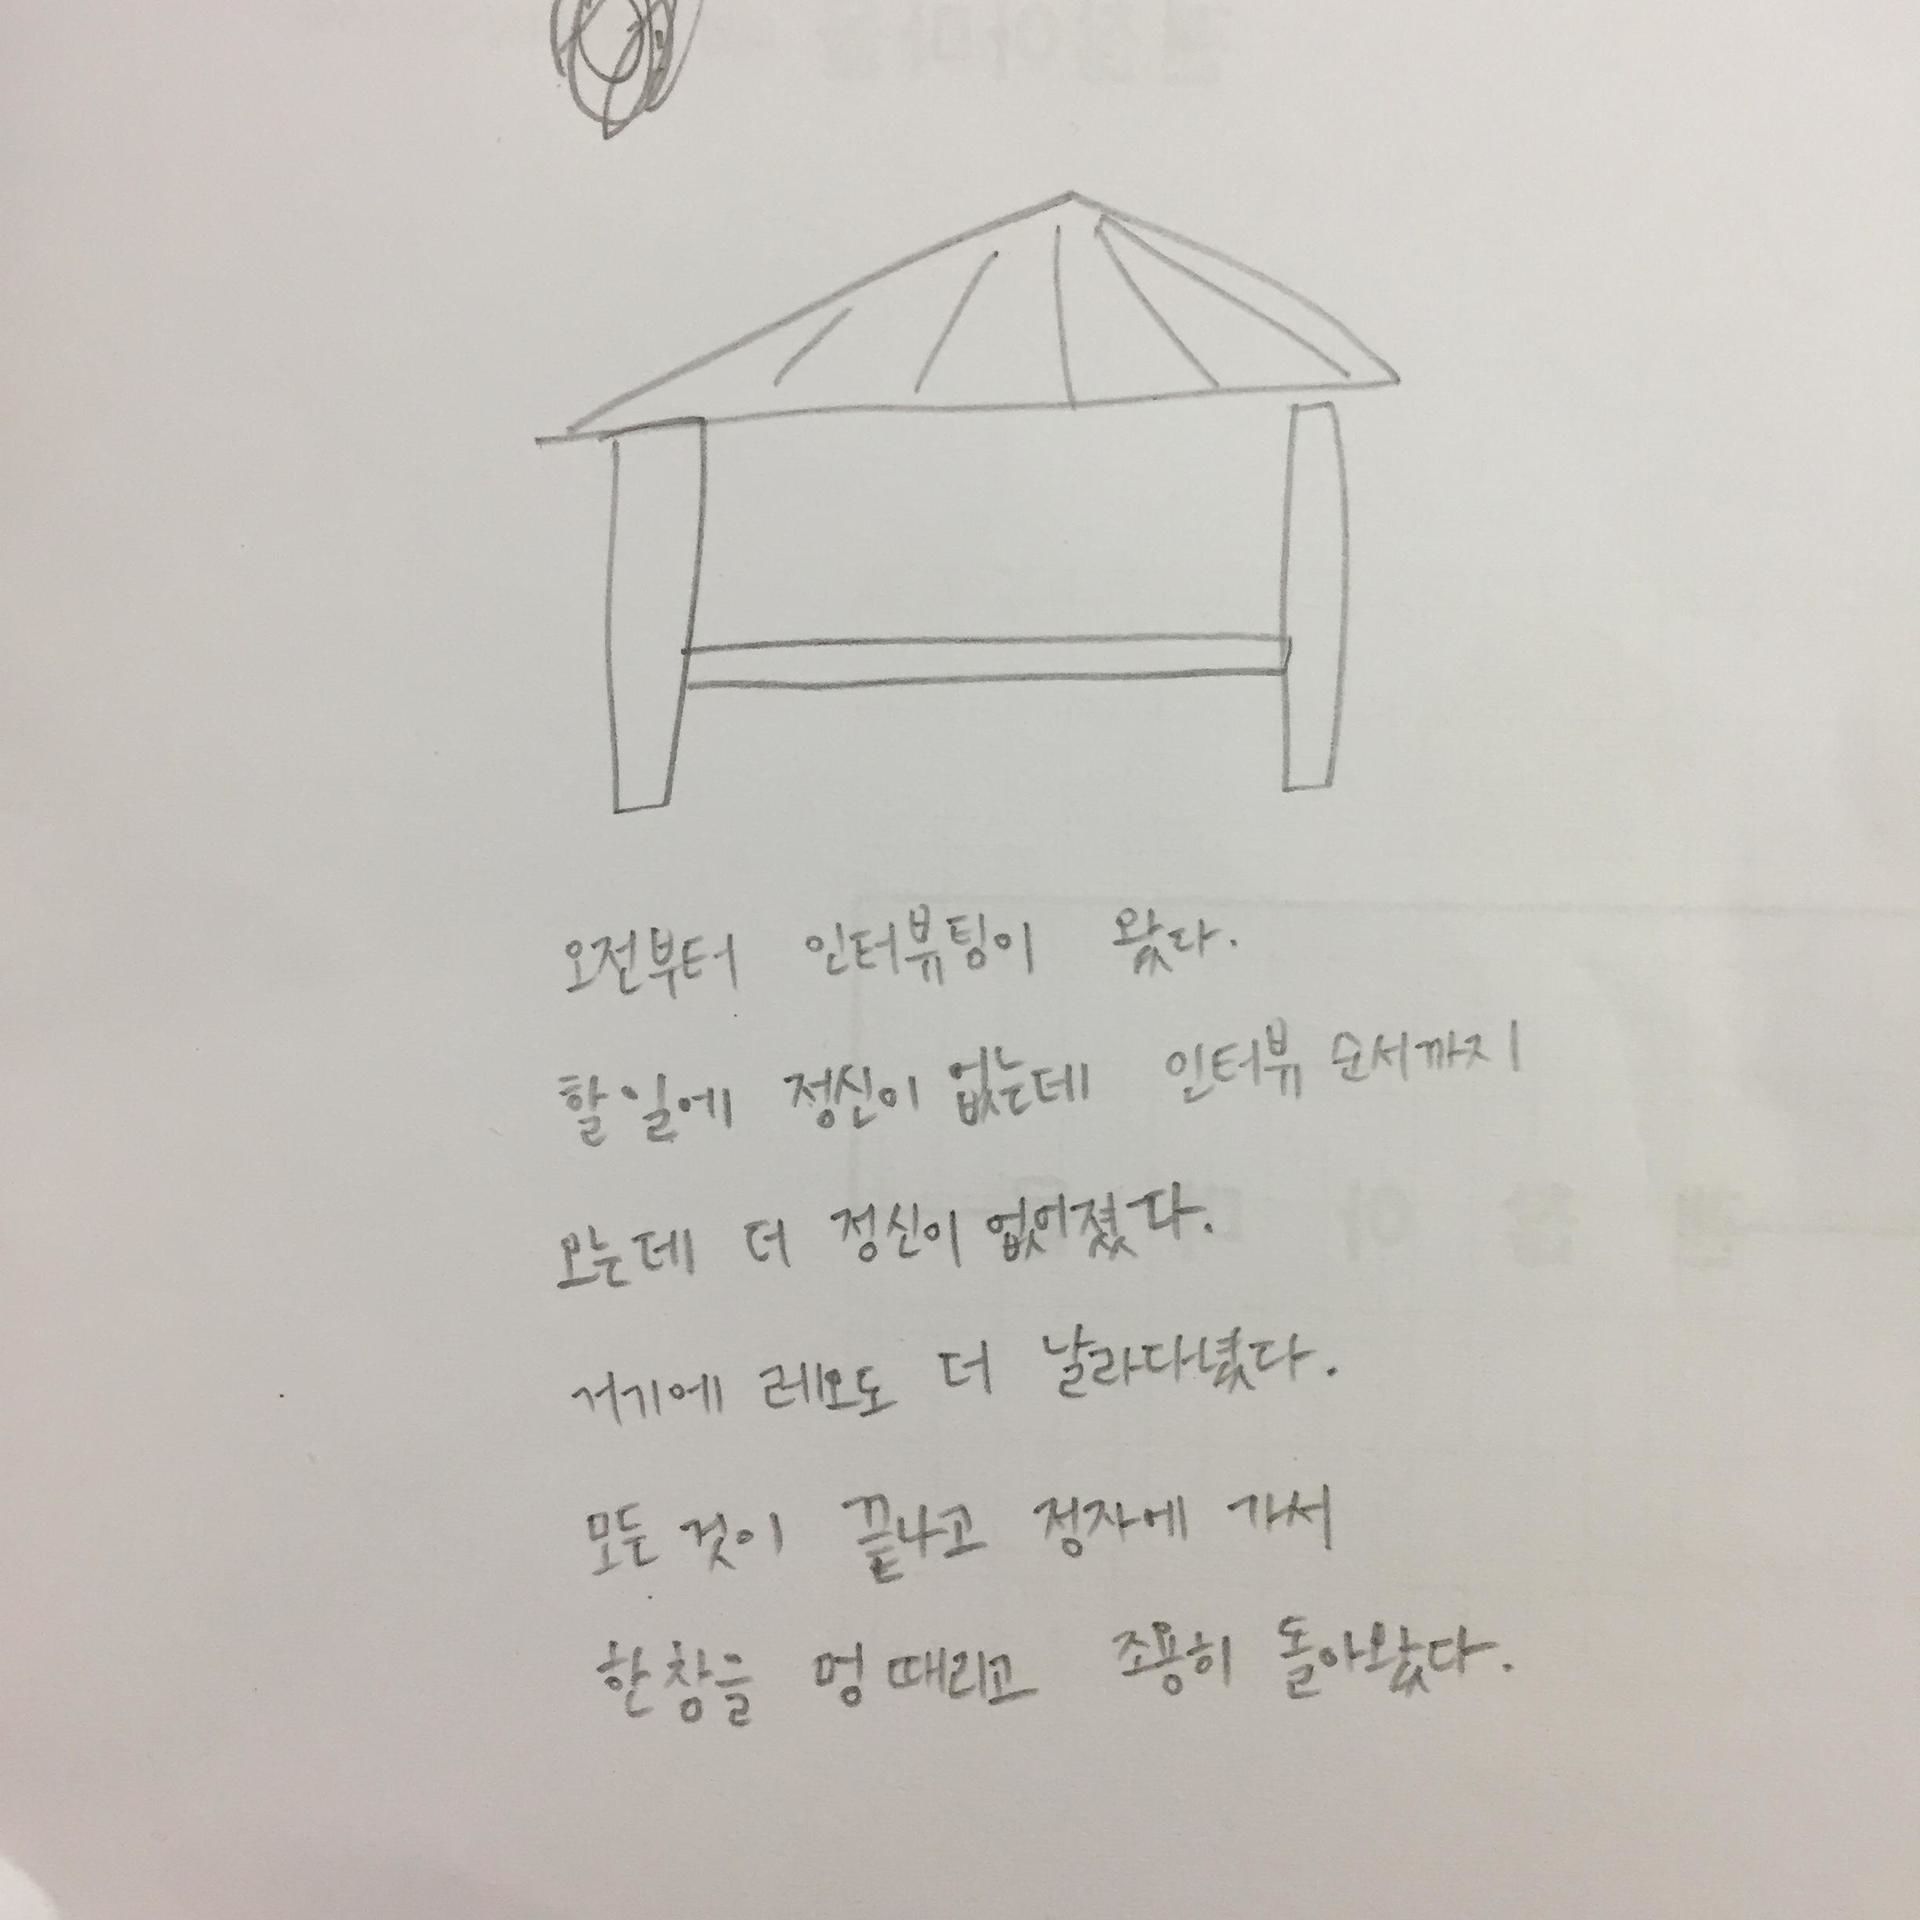 오전부터 인터뷰팅이 왔다.
할일에 정신이 없는데 인터뷰 순서까지
오는데 더 정신이 없어졌다.
거기에 레오도 더 날라다녔다.
모든 것이 끝나고 정자에 가서
한창을 멍 때리고 조용히 돌아왔다.